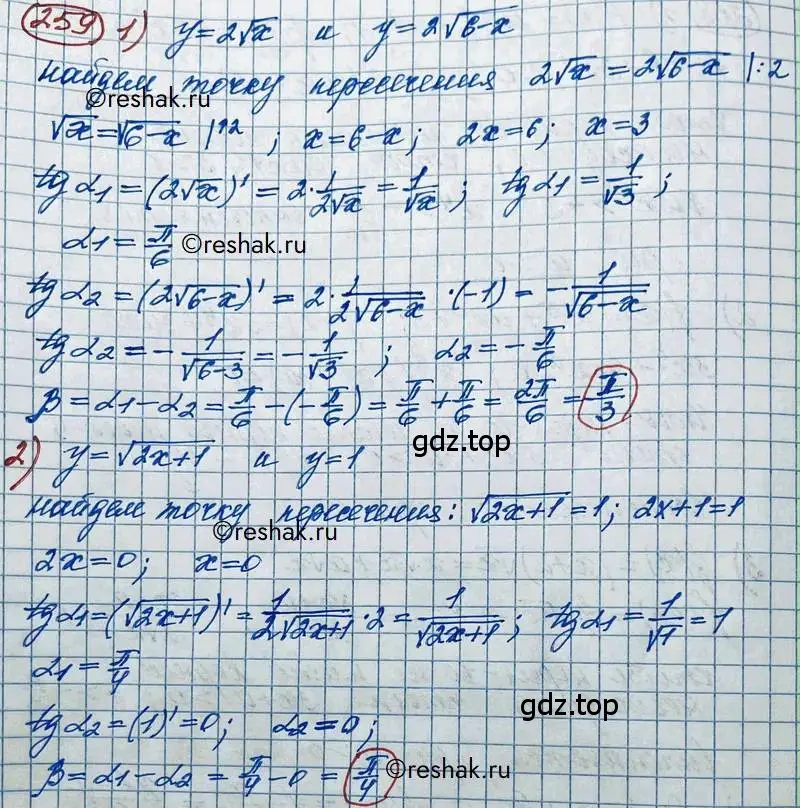 259 1) y=2√x и y=2√(6-x)
найдем точку пересечения 2√x = 2√(6-x) |:2
© reshak.ru
√x=√(6-x) |↑2 ; x=6-x; 2x=6; x=3
tg α1 = (2√x)' = 2·1/(2√x) = 1/√x ; tg α1 = 1/√3 ;
α1 = π/6 © reshak.ru
tg α2 = (2√(6-x))' = 2·1/(2√(6-x)) ·(-1) = -1/√(6-x)
tg α2 = -1/√(6-3) = -1/√3 ; α2 = -π/6
β = α1 - α2 = π/6 - (-π/6) = π/6 + π/6 = 2π/6 = π/3
gdz.top
2) y=√(2x+1) и y=1
найдем точку пересечения: √(2x+1) = 1; 2x+1=1
© reshak.ru
2x=0; x=0
tg α1 = (√(2x+1))' = 1/(2√(2x+1)) ·2 = 1/√(2x+1) ; tg α1 = 1/√1 = 1
α1 = π/4
gdz.top
tg α2 = (1)' = 0; α2 = 0;
β = α1 - α2 = π/4 - 0 = π/4
© reshak.ru